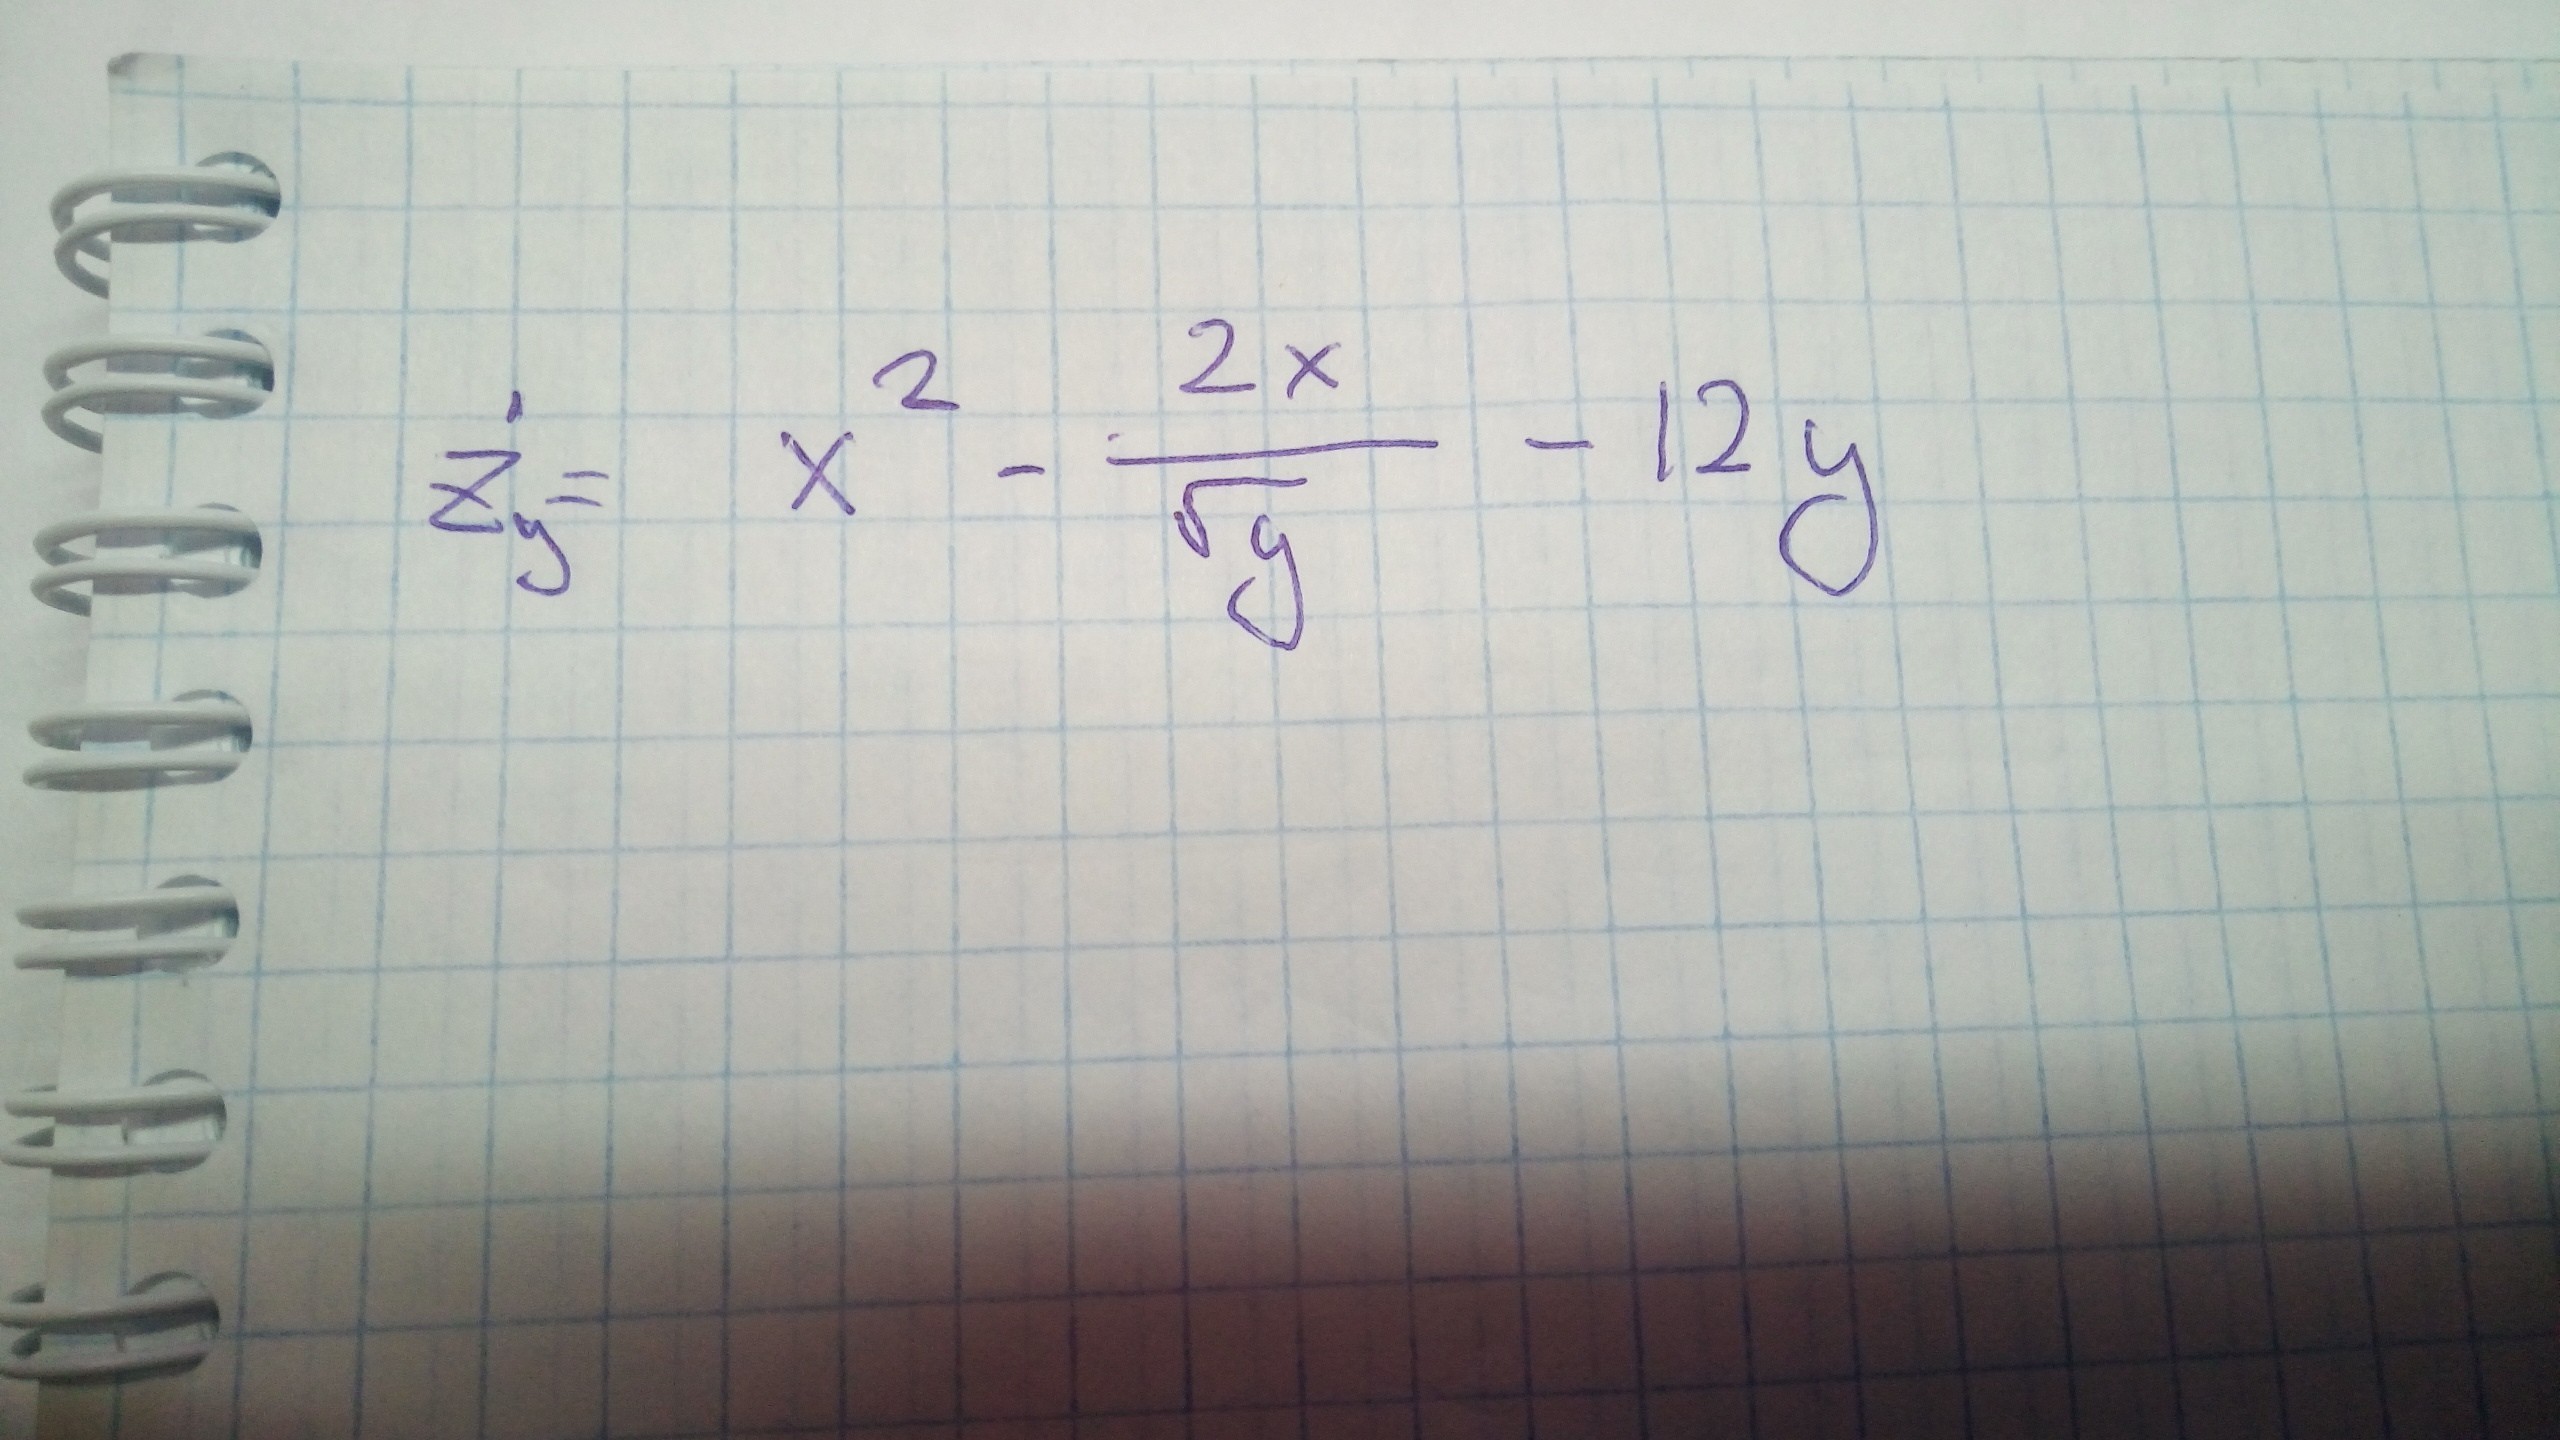 z'y = x² - 2x/√y - 12y